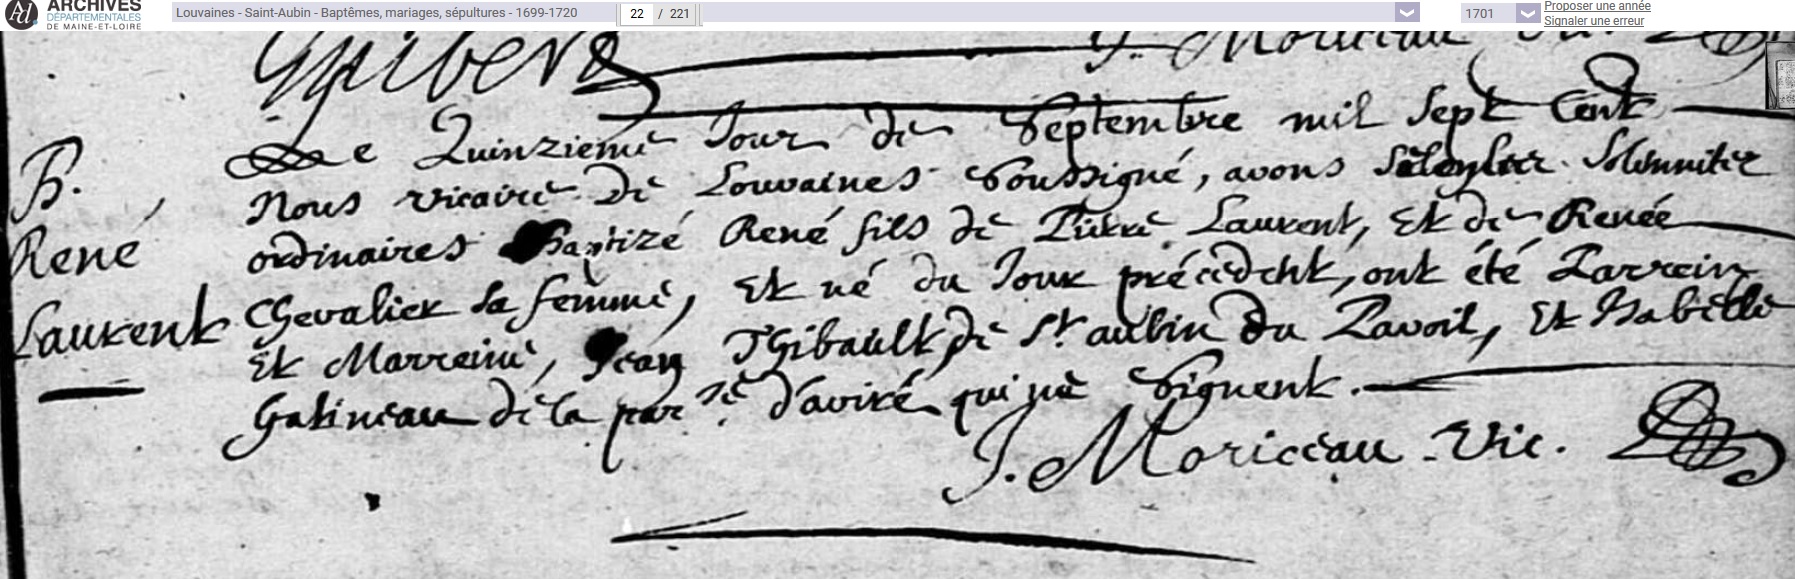 ARCHIVES
DÉPARTEMENTALES
DE MAINE-ET-LOIRE
Louvaines - Saint-Aubin - Baptêmes, mariages, sépultures - 1699-1720
22 / 221
1701
Proposer une année
Signaler une erreur
J. Moriceau
Le Quinzieme Jour de Septembre mil Sept Cent
Nous vicaire de Louvaines Soussigné, avons Solemnitez
ordinaires Baptizé René fils de Pierre Laurent, Et de Renée
Chevalier Sa femme, Et né du Jour précédent, ont été Parrein
Et Marreine, Jean Thibault de St. aubin du Pavoil, Et Isabelle
Gatineau de la par.se d'aviré qui ne Signent.
J. Moriceau Vic.
B.
René
Laurent